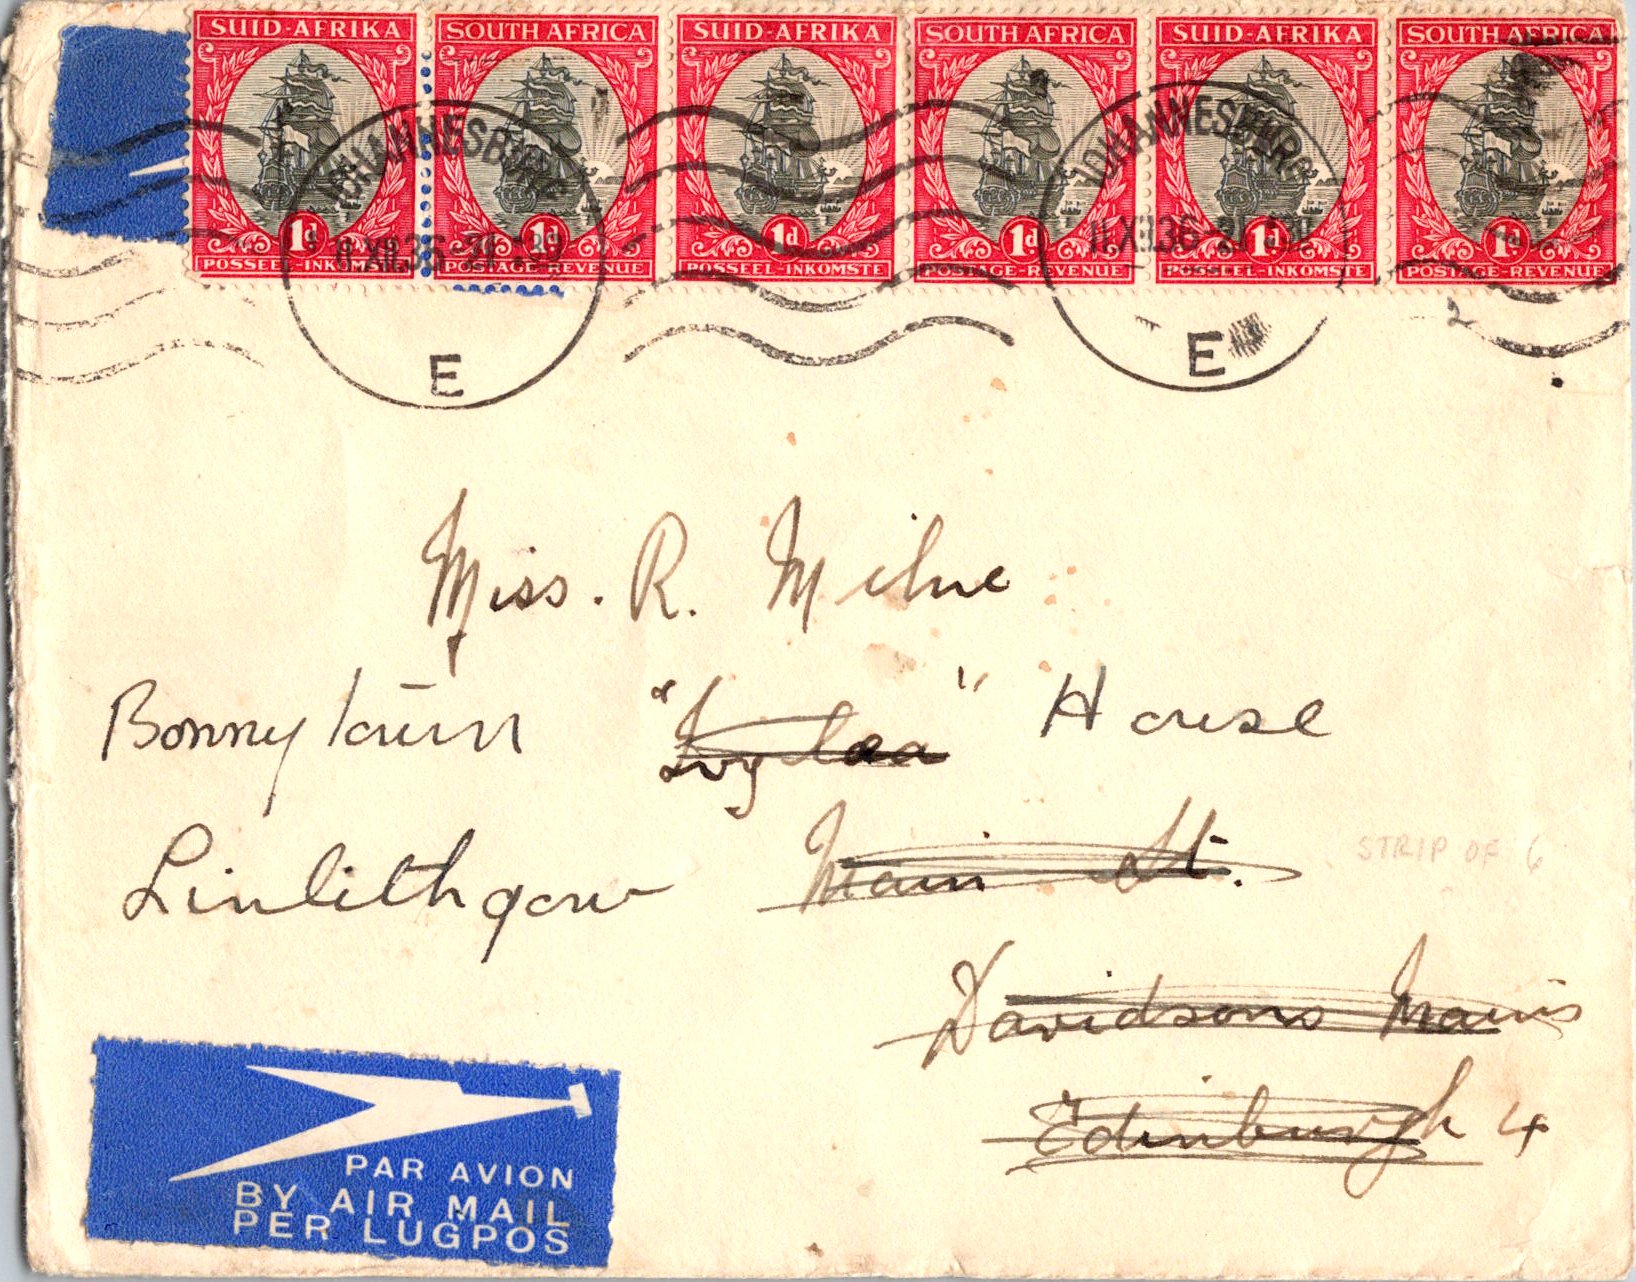 SUID-AFRIKA SOUTH AFRICA SUID-AFRIKA SOUTH AFRICA SUID-AFRIKA SOUTH AFRICA
1d 1d 1d 1d 1d 1d
POSSEEL-INKOMSTE POSTAGE-REVENUE POSSEEL-INKOMSTE POSTAGE-REVENUE POSSEEL-INKOMSTE POSTAGE-REVENUE
JOHANNESBURG
11 XII.36
E
JOHANNESBURG
11 XII.36
E
Miss. R. Milne
Bonnytoun "Ivylea" House
Linlithgow Main St.
STRIP OF 6
Davidsons Mains
Edinburgh 4
PAR AVION
BY AIR MAIL
PER LUGPOS